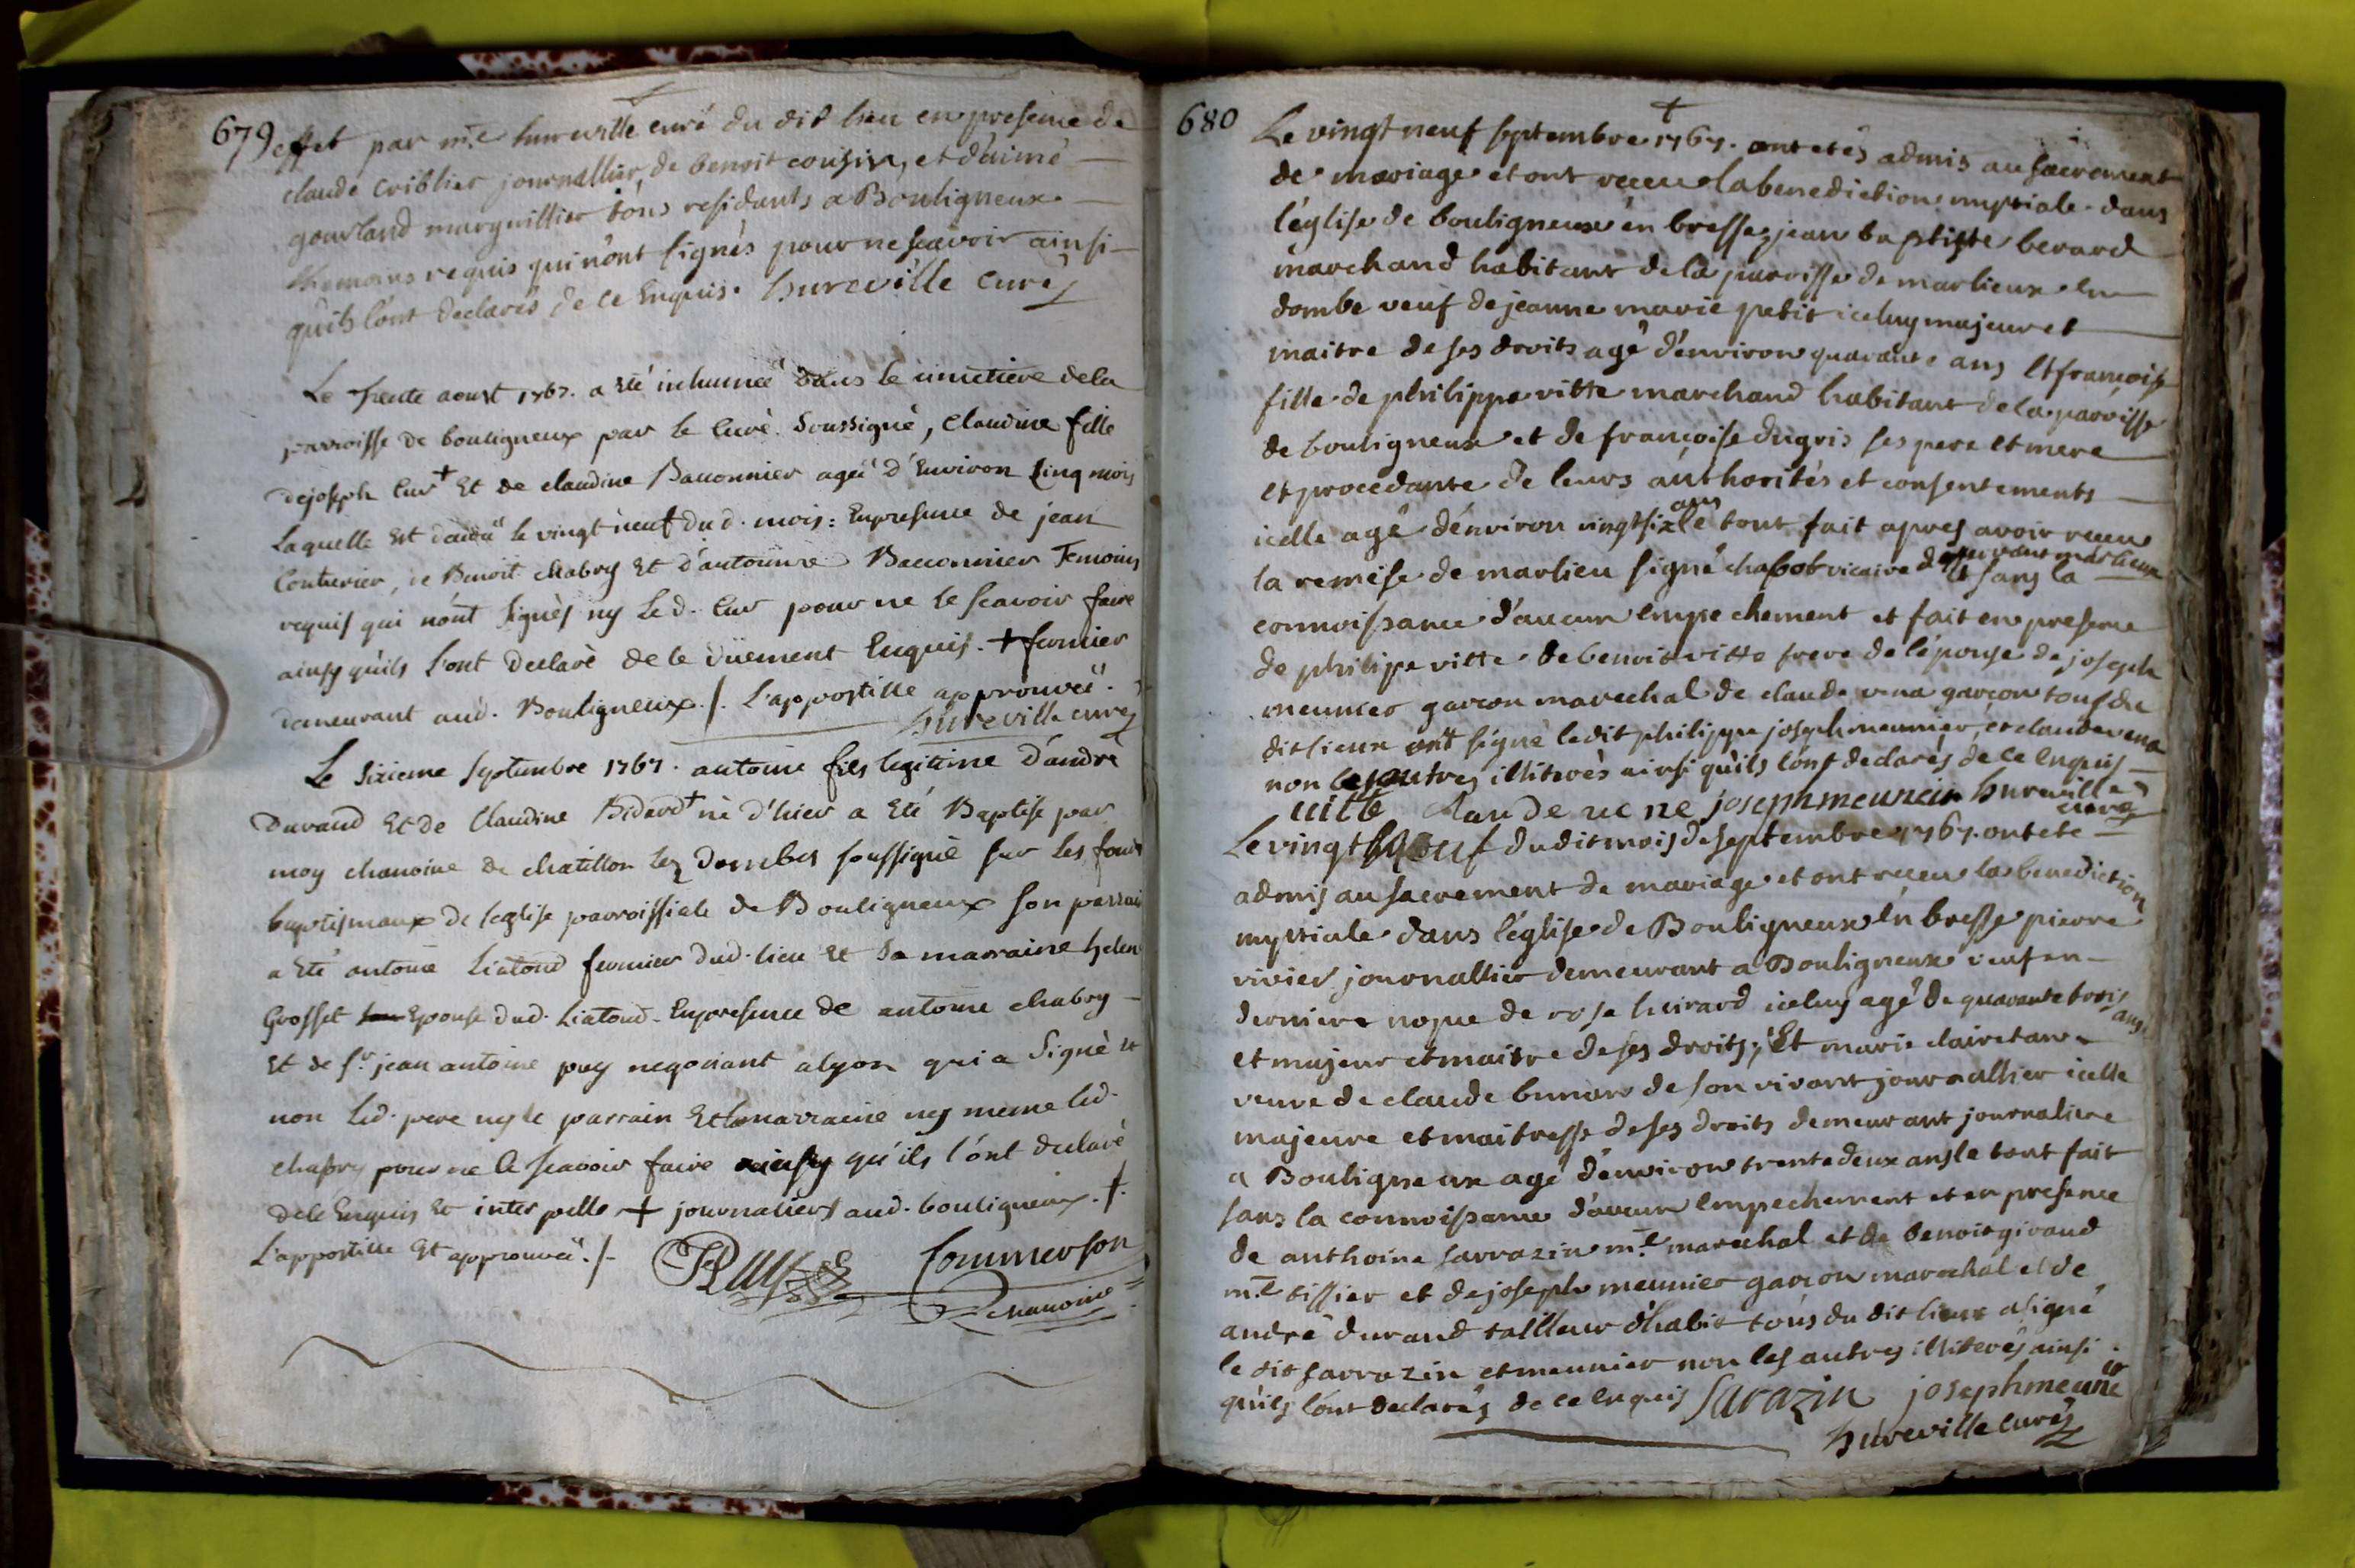 679
effet par m.e hureville curé du dit lieu en presence de
claude criblier journallier, de benoit cousin, et d'aimé
gourland marguillier tous residants a Bouligneux
themoins requis qui n'ont signés pour ne sçavoir ainsi
qu'ils l'ont declarés de ce Enquis. hureville curé
Le trente aoust 1767. a eté inhumeé dans le cimetiere dela
parroisse de bouligneux par le curè soussignè, claudine fille
de joseph cur+ Et de claudine Baconnier ageé d'Environ Cinq mois
Laquelle est le vingt neuf du d. mois: Enpresence de jean
Couturier, de Benoit chabry Et d'antoinne Baconnier Temoins
requis qui nónt Signès ny Le d. Cur pour ne le scavoir faire
ainsy qu'ils l'ont Declarè de le düement Enquis. + fermier
demeurant aud. Bouligneux./. L'appostille approuveé.
hureville curé
Le Sixieme Septembre 1767. antoine fils legitime D'andrè
Durand Et de Claudine Bidard+ nè d'hier a Eté Baptisè par
moy chanoine de chatillon lez Dombes soussignè sur les fonds
baptismaux de l'eglise parroissiale de Bouligneux son parrain
a Eté antoine Liatoud fermier dud. lieu Et Sa marraine helen
Grosset Epouse dud. Liatoud. Enpresence de antoine chabry
Et de s.r jean antoine puy negotiant alyon qui a Signè Et
non led. pere ny le parrain Et la marraine ny meme led.
chabry pour ne le scavoir faire ainsy qu'ils l'ónt declarè
dele Enquis Et interpelle + journaliers aud. bouligneux. +.
L'appostille Est approuveé./.
Puy Commerson
chanoine
680
Le vingt neuf septembre 1767. ont etés admis au sacrement
de mariage et ont receu la benediction nuptiale dans
l'église de bouligneux en bresse, jean baptiste berard
marchand habitant de la paroisse de marlieux en
dombe veuf de jeanne marie petit iceluy majeur et
maitre de ses droits agé d'environ quarante ans Et françoise
fille de philippe vitte marchand habitant de la paroisse
de bouligneux et de françoise dugris ses pere et mere
et procedante de leurs authorités et consentements
icelle agé d'environ vingtsix ans le tout fait apres avoir receu
la remise de marlieu signé chabot vicaire desservant marlieux et sans la
connoissance d'aucun empechement et fait en presence
de philippe vitte de benoit vitte frere de l'épouse de joseph
meunier garcon marechal de claude vena garcon tous du
dit lieux ont signé ledit philippe joseph meunier, et claude vena
non les autres illiterés ainsi qu'ils l'ont declarés de ce enquis
uitte joseph meunein hureville
curé
Le vingt neuf du dit mois de septembre 1767. ont eté
admis au sacrement de mariage et ont receu la benediction
nuptiale dans l'église de Bouligneux en bresse pierre
rivier journallier demeurant a Bouligneux veuf en
derniere nopce de rose huirard iceluy agé de quarante trois ans
et majeur et maitre de ses droits; Et marie clairetan
veuve de claude bunow de son vivant journallier icelle
majeure et maitresse de ses droits demeurant journaliere
a Bouligneux agé d'environ trente deux ans le tout fait
sans la connoissance d'aucun empechement et en presence
de anthoine sarrazin m.e marechal et de benoit giraud
m.e tissier et de joseph meunier garcon marechal et de
andré durand tailleur d'habit tous du dit lieux a signé
le dit sarrazin et meunier non les autres illiterés ainsi
qu'ils l'ont declarés de ce enquis Sarazin joseph meunie
hureville curé